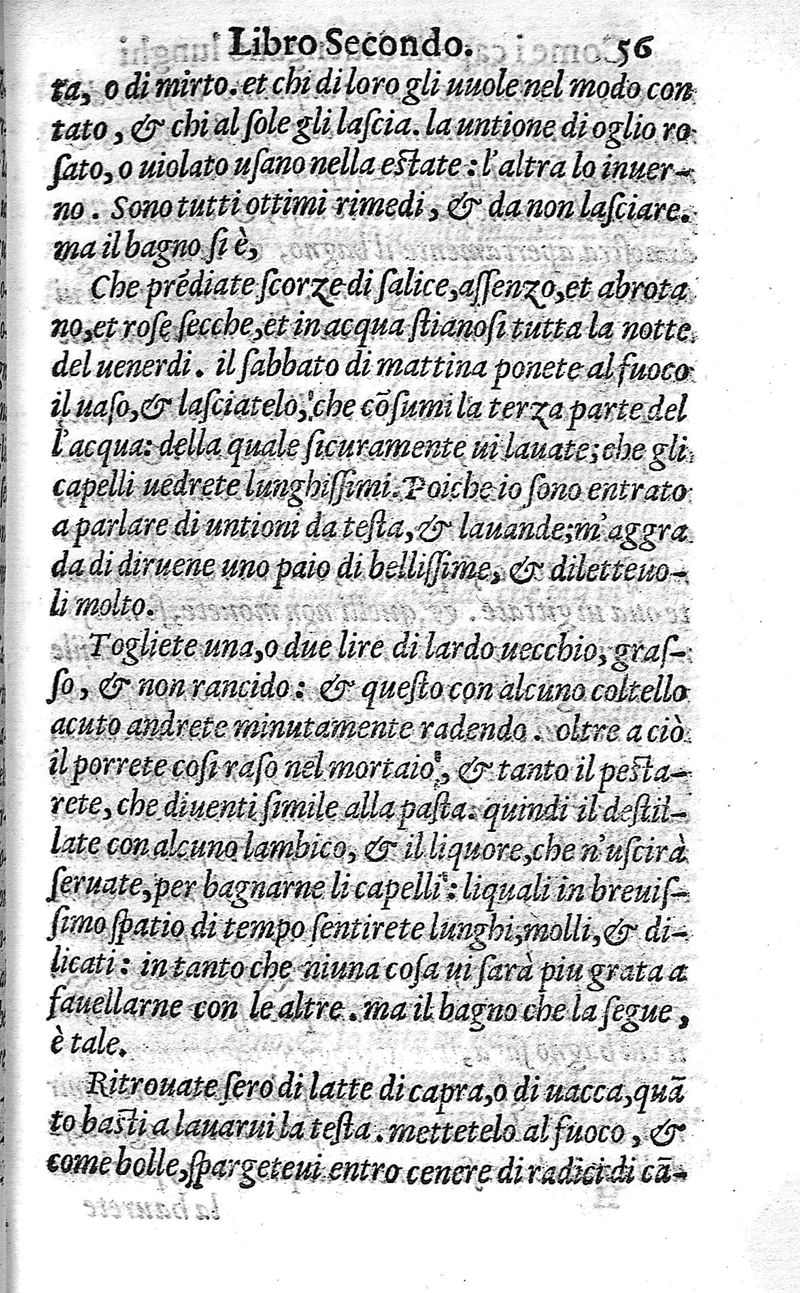 Libro Secondo. 56
ta, o di mirto. et chi di loro gli uuole nel modo con
tato, & chi al ſole gli laſcia. la untione di oglio ro-
ſato, o uiolato uſano nella eſtate: l'altra lo inuer-
no. Sono tutti ottimi rimedi, & da non laſciare.
ma il bagno ſi è,
Che prẽdiate ſcorze di ſalice, aſſenzo, et abrota
no, et roſe ſecche, et in acqua ſtianoſi tutta la notte
del uenerdi. il ſabbato di mattina ponete al fuoco
il uaſo, & laſciatelo, che cõſumi la terza parte del
l'acqua: della quale ſicuramente ui lauate; che gli
capelli uedrete lunghiſſimi. Poiche io ſono entrato
a parlare di untioni da teſta, & lauande; m'aggra
da di diruene uno paio di belliſſime, & diletteuo-
li molto.
Togliete una, o due lire di lardo uecchio, graſ-
ſo, & non rancido: & queſto con alcuno coltello
acuto andrete minutamente radendo. oltre a ciò
il porrete coſi raſo nel mortaio, & tanto il peſta-
rete, che diuenti ſimile alla paſta. quindi il deſtil-
late con alcuno lambico, & il liquore, che n'uſcirà
ſeruate, per bagnarne li capelli: liquali in breuiſ-
ſimo ſpatio di tempo ſentirete lunghi, molli, & di-
licati: in tanto che niuna coſa ui ſarà piu grata a
fauellarne con le altre. ma il bagno che la ſegue,
è tale.
Ritrouate ſero di latte di capra, o di uacca, quã
to baſti a lauarui la teſta. mettetelo al fuoco, &
come bolle, ſpargeteui entro cenere di radici di cã-